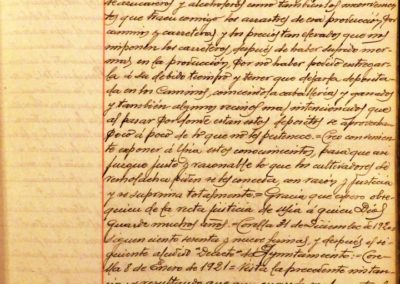 de azucareros y alcoholeros como tambien los inconvenien-
tes que traen consigo los arrastres de esa produccion por
caminos y carreteras y los precios tan elevados que nos
imponen los carreteros, despues de haber sufrido mer-
mas, en la produccion, por no haber podido entregar-
la á su debido tiempo y tener que dejarla deposita-
da en los Caminos, caballerias y ganados
y tambien algunos vecinos mal intencionados que
al pasar por donde estan estos depositos se aprovechan
poco á poco de lo que no les pertenece = Creo convenien-
te exponer á Usia estos conocimientos, para que asi
juzgue justo y razonable lo que los cultivadores de
remolacha piden se les conceda con razon y justicia
y se suprima totalmente = Gracia que espero obte-
ner de la recta justicia de Usia á quien Dios
guarde muchos años. = Corella 31 de Diciembre de 1920
= Siguen ciento setenta y nueve firmas, y despues al si-
guiente Decreto = Ayuntamiento: = Co-
rella 8 de Enero de 1921 = Vista la precedente instan-
cia y resultando que